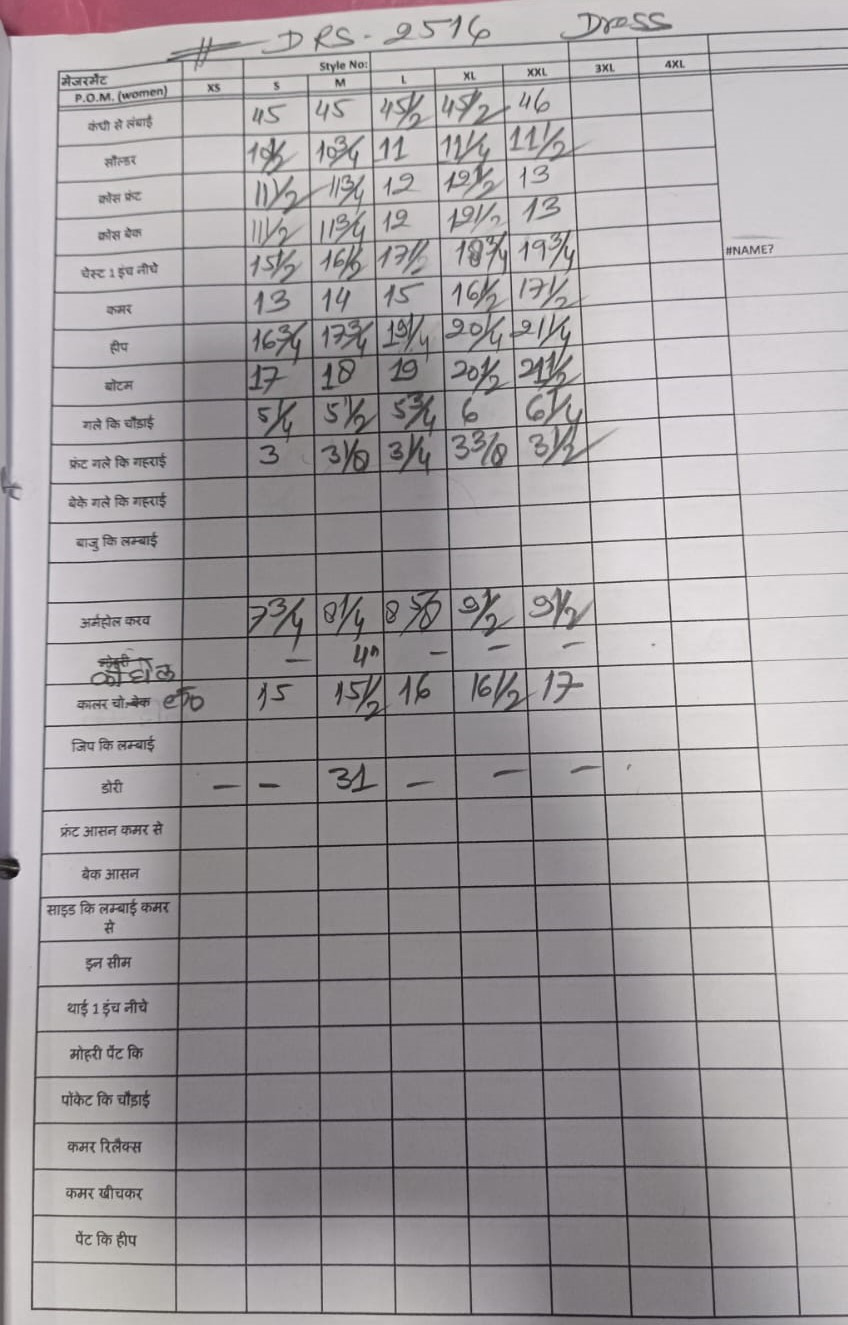 # DRS-2516 Dress
मेजरमेंट Style No:
P.O.M. (women) XS S M L XL XXL 3XL 4XL
कंधी से लंबाई 45 45 45 1/2 45 1/2 46
सौल्डर 10 1/2 10 3/4 11 11 1/4 11 1/2
क्रोस फ्रंट 11 1/2 11 3/4 12 12 1/2 13
क्रोस बेक 11 1/2 11 3/4 12 12 1/2 13
चेस्ट 1 इंच नीचे 15 1/2 16 1/2 17 1/2 18 3/4 19 3/4 #NAME?
कमर 13 14 15 16 1/2 17 1/2
हीप 16 3/4 17 3/4 19 1/4 20 1/4 21 1/4
बोटम 17 18 19 20 1/2 21 1/2
गले कि चौडाई 5 1/4 5 1/2 5 3/4 6 6 1/4
फ्रंट गले कि गहराई 3 3 1/8 3 1/4 3 3/8 3 1/2
बेके गले कि गहराई
बाजु कि लम्बाई
अर्महोल करव 7 3/4 8 1/4 8 5/8 9 1/2 9 1/2
– 4" – – –
कालर चो.बेक 15 15 1/2 16 16 1/2 17
जिप कि लम्बाई
डोरी – – 31 – – –
फ्रंट आसन कमर से
बेक आसन
साइड कि लम्बाई कमर
से
इन सीम
थाई 1 इंच नीचे
मोहरी पेंट कि
पॉकेट कि चौड़ाई
कमर रिलैक्स
कमर खीचकर
पेंट कि हीप